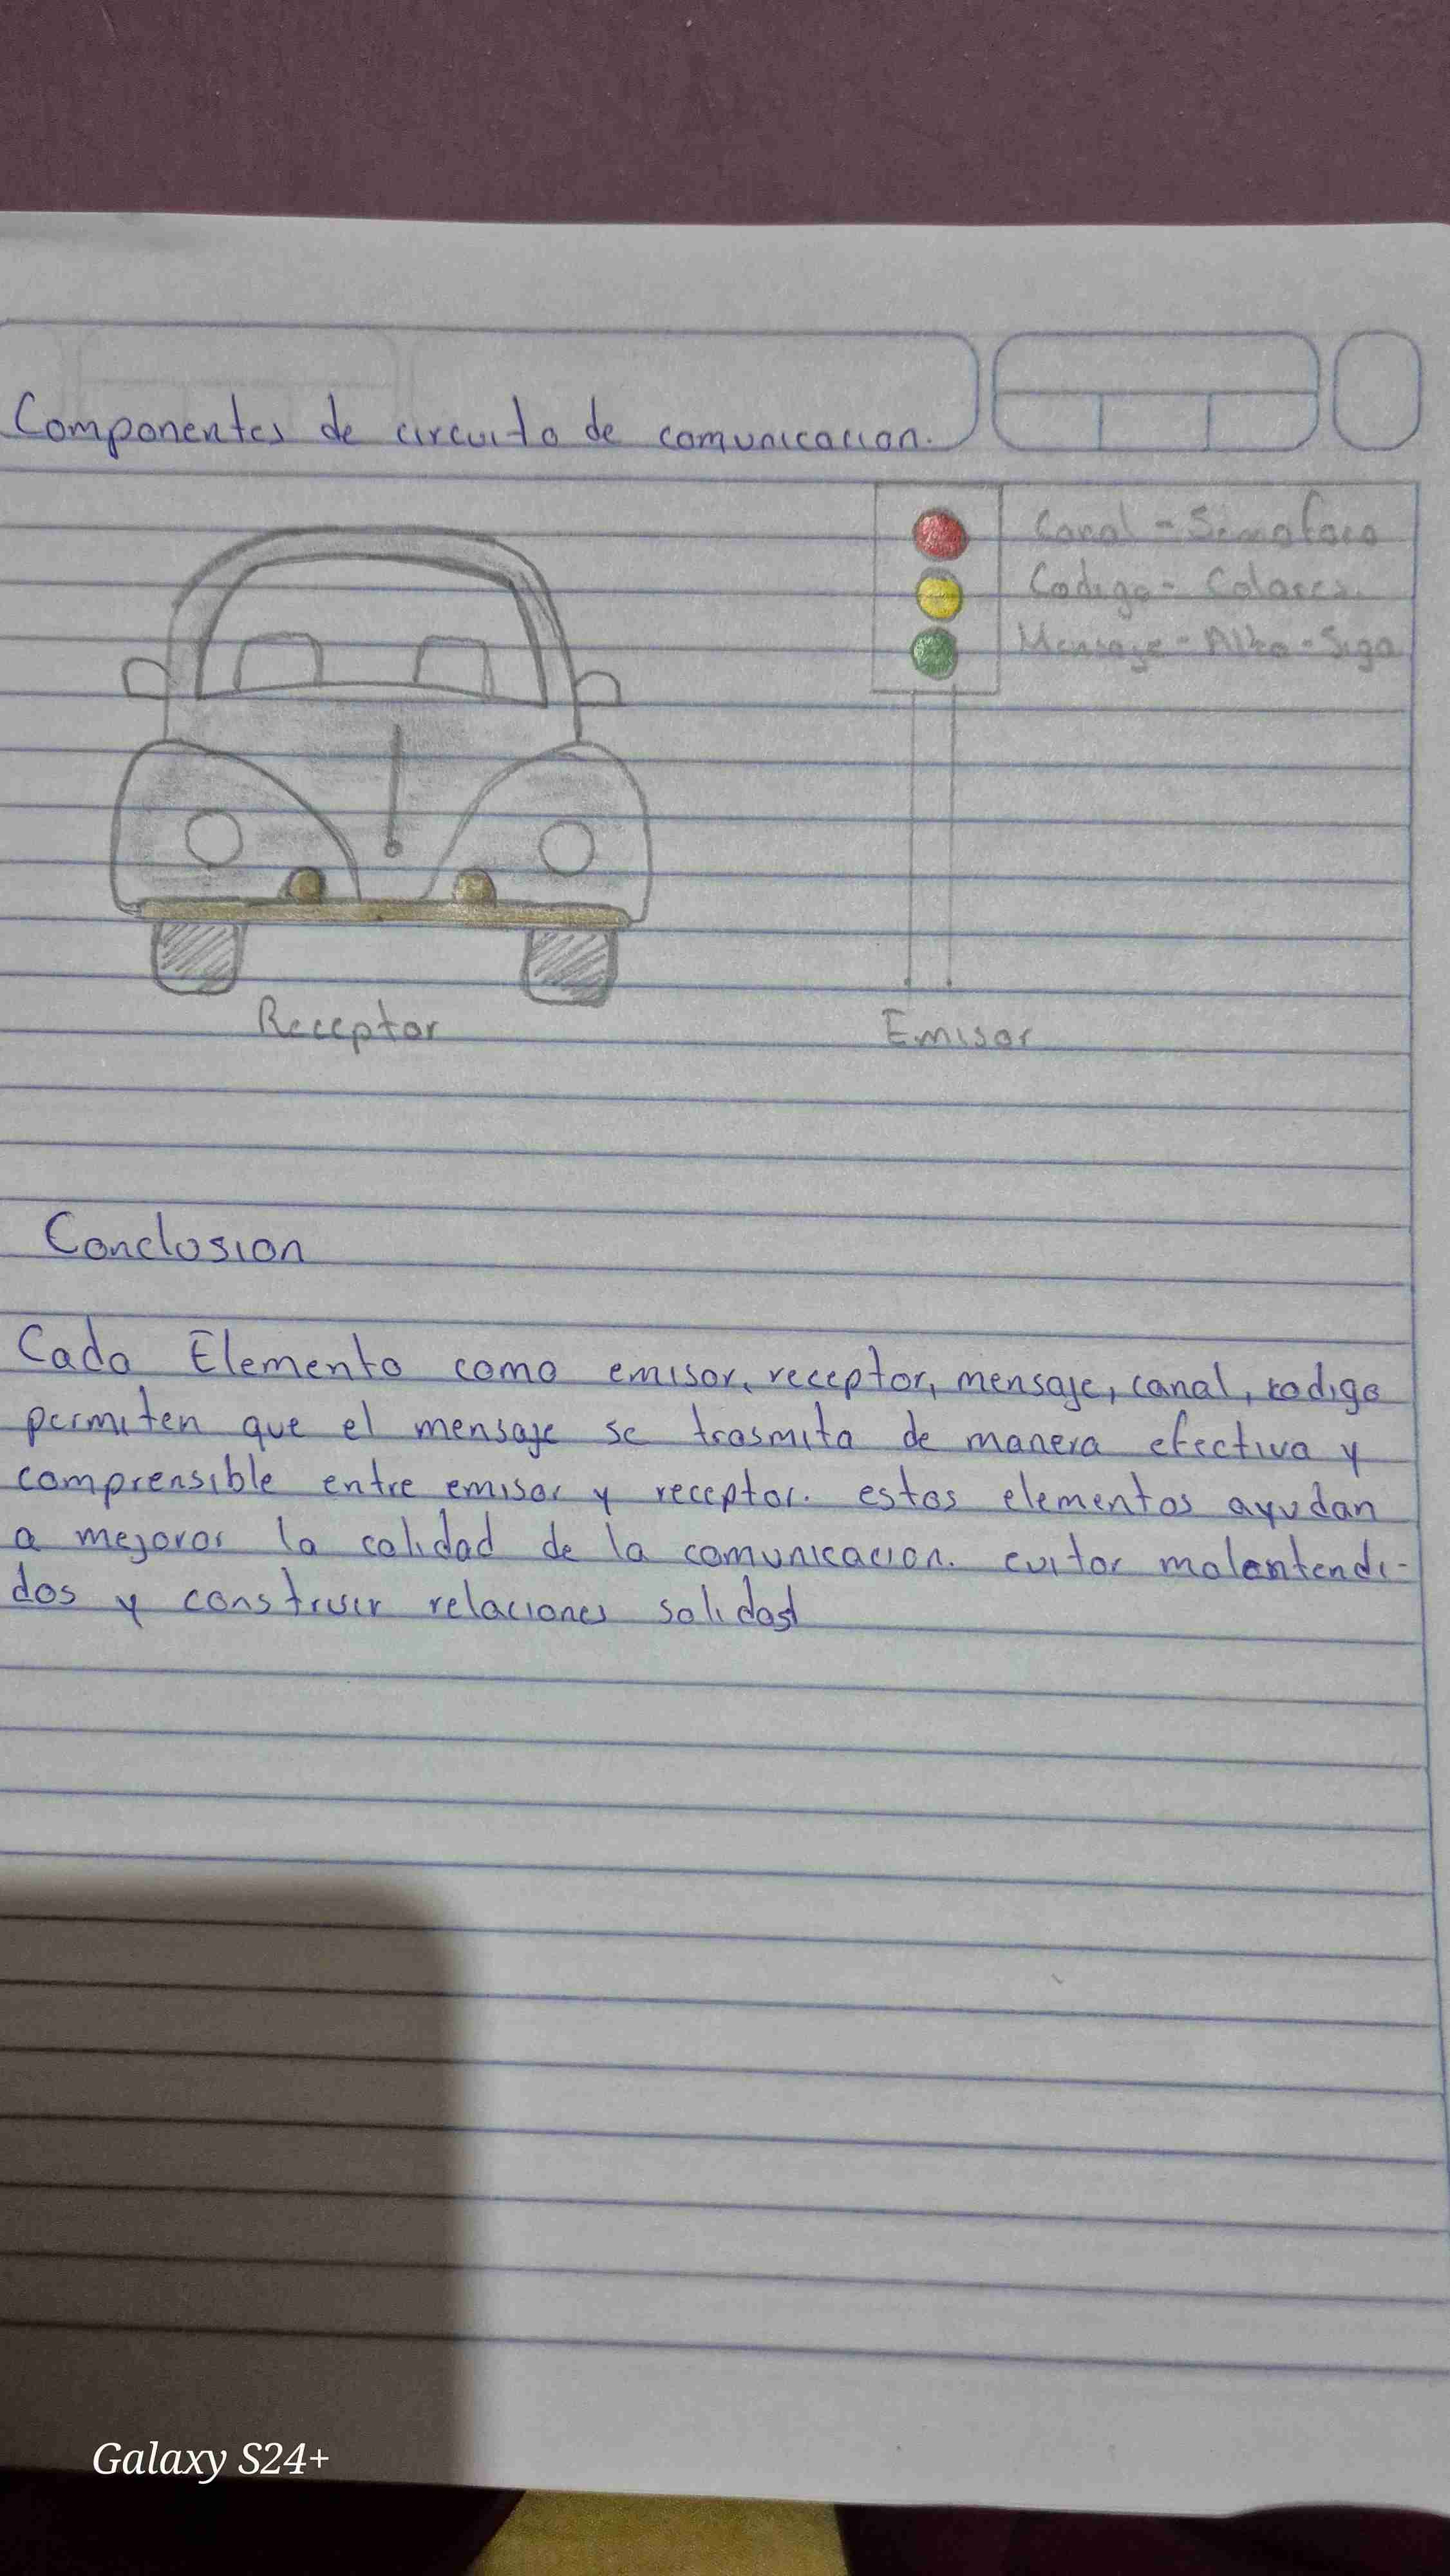 Componentes de circuito de comunicacion.
Canal - Semaforo
Codigo - Colores
Mensaje - Alto - Siga
Receptor
Emisor
Conclusion
Cada Elemento como emisor, receptor, mensaje, canal, codigo
permiten que el mensaje se trasmita de manera efectiva y
comprensible entre emisor y receptor. estos elementos ayudan
a mejorar la calidad de la comunicacion. evitar malentendi-
dos y construir relaciones solidas
Galaxy S24+